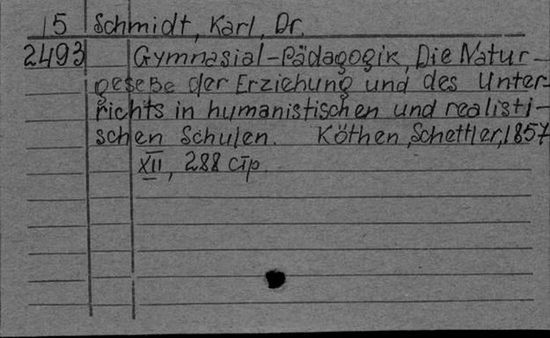 15 Schmidt, Karl, Dr.
2493 Gymnasial-Pädagogik, Die Natur-
geseße der Erziehung und des Unter-
richts in humanistischen und realisti-
schen Schulen. Köthen, Schettler, 1857
XII, 288 стр.